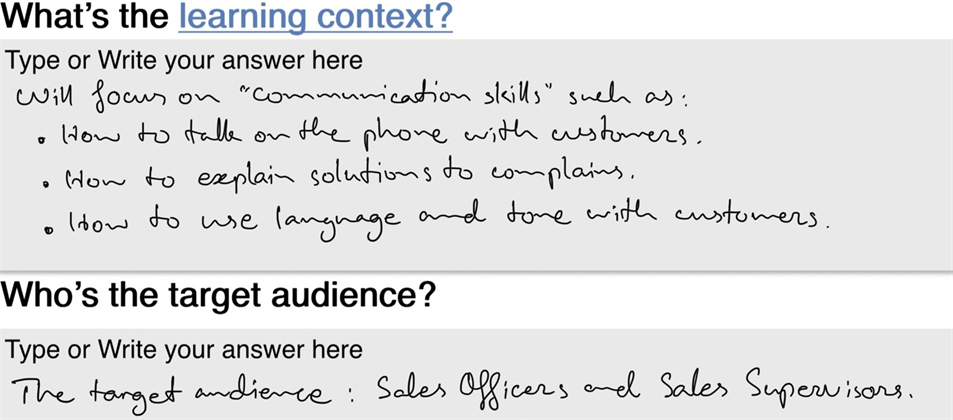 What's the learning context?
Type or Write your answer here
Will focus on "communication skills" such as:
• How to talk on the phone with customers.
• How to explain solutions to complains.
• How to use language and tone with customers.
Who's the target audience?
Type or Write your answer here
The target audience : Sales Officers and Sales Supervisors.